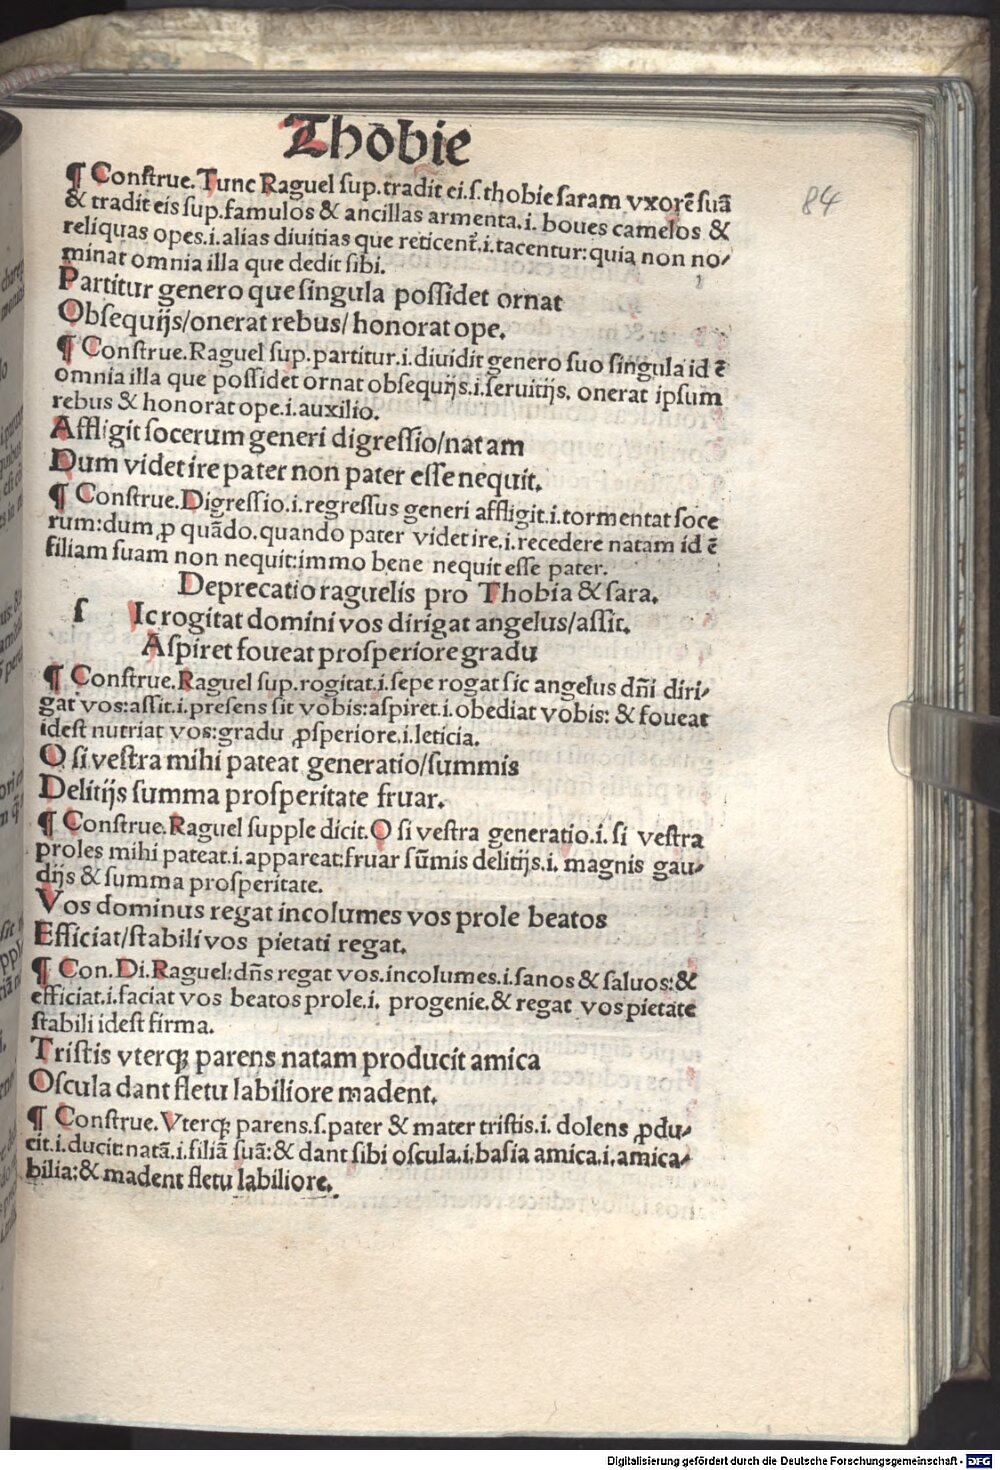 Thobie
84
¶ Construe. Tunc Raguel sup. tradit ei. s. thobie saram vxorē suā
& tradit eis sup. famulos & ancillas armenta. i. boues camelos &
reliquas opes. i. alias diuitias que reticent̄. i. tacentur: quia non no/
minat omnia illa que dedit sibi.
Partitur genero que singula possidet ornat
Obsequijs/onerat rebus/ honorat ope.
¶ Construe. Raguel sup. partitur. i. diuidit genero suo singula id ē
omnia illa que possidet ornat obsequijs. i. seruitijs, onerat ipsum
rebus & honorat ope. i. auxilio.
Affligit socerum generi digressio/natam
Dum videt ire pater non pater esse nequit.
¶ Construe. Digressio. i. regressus generi affligit. i. tormentat soce
rum: dum, ꝓ quādo. quando pater videt ire. i. recedere natam id ē
filiam suam non nequit: immo bene nequit esse pater.
Deprecatio raguelis pro Thobia & sara.
s Ic rogitat domini vos dirigat angelus/assit.
Aspiret foueat prosperiore gradu
¶ Construe. Raguel sup. rogitat. i. sepe rogat sic angelus dn̄i diri/
gat vos: assit. i. presens sit vobis: aspiret. i. obediat vobis: & foueat
idest nutriat vos: gradu ꝓsperiore. i. leticia.
O si vestra mihi pateat generatio/summis
Delitijs summa prosperitate fruar.
¶ Construe. Raguel supple dicit. O si vestra generatio. i. si vestra
proles mihi pateat. i. appareat: fruar sūmis delitijs. i. magnis gau/
dijs & summa prosperitate.
Vos dominus regat incolumes vos prole beatos
Efficiat/stabili vos pietati regat.
¶ Con. Di. Raguel: dn̄s regat vos. incolumes. i. sanos & saluos: &
efficiat. i. faciat vos beatos prole. i. progenie. & regat vos pietate
stabili idest firma.
Tristis vterqꝫ parens natam producit amica
Oscula dant fletu labiliore madent.
¶ Construe. Vterqꝫ parens. s. pater & mater tristis. i. dolens ꝓdu/
cit. i. ducit: natā. i. filiā suā: & dant sibi oscula. i. basia amica. i. amica/
bilia: & madent fletu labiliore.
Digitalisierung gefördert durch die Deutsche Forschungsgemeinschaft - DFG